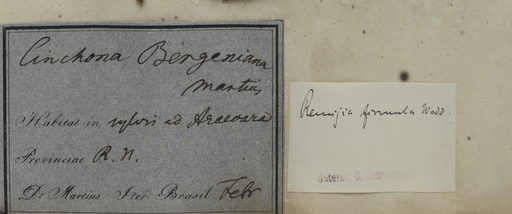 Cinchona Bergeniana
Martius
Habitat in sylvis ad Araracoara
Provinciae R. N.
Dr. Martius Iter Brasil. Febr
Remijia firmula Wedd.
determ.